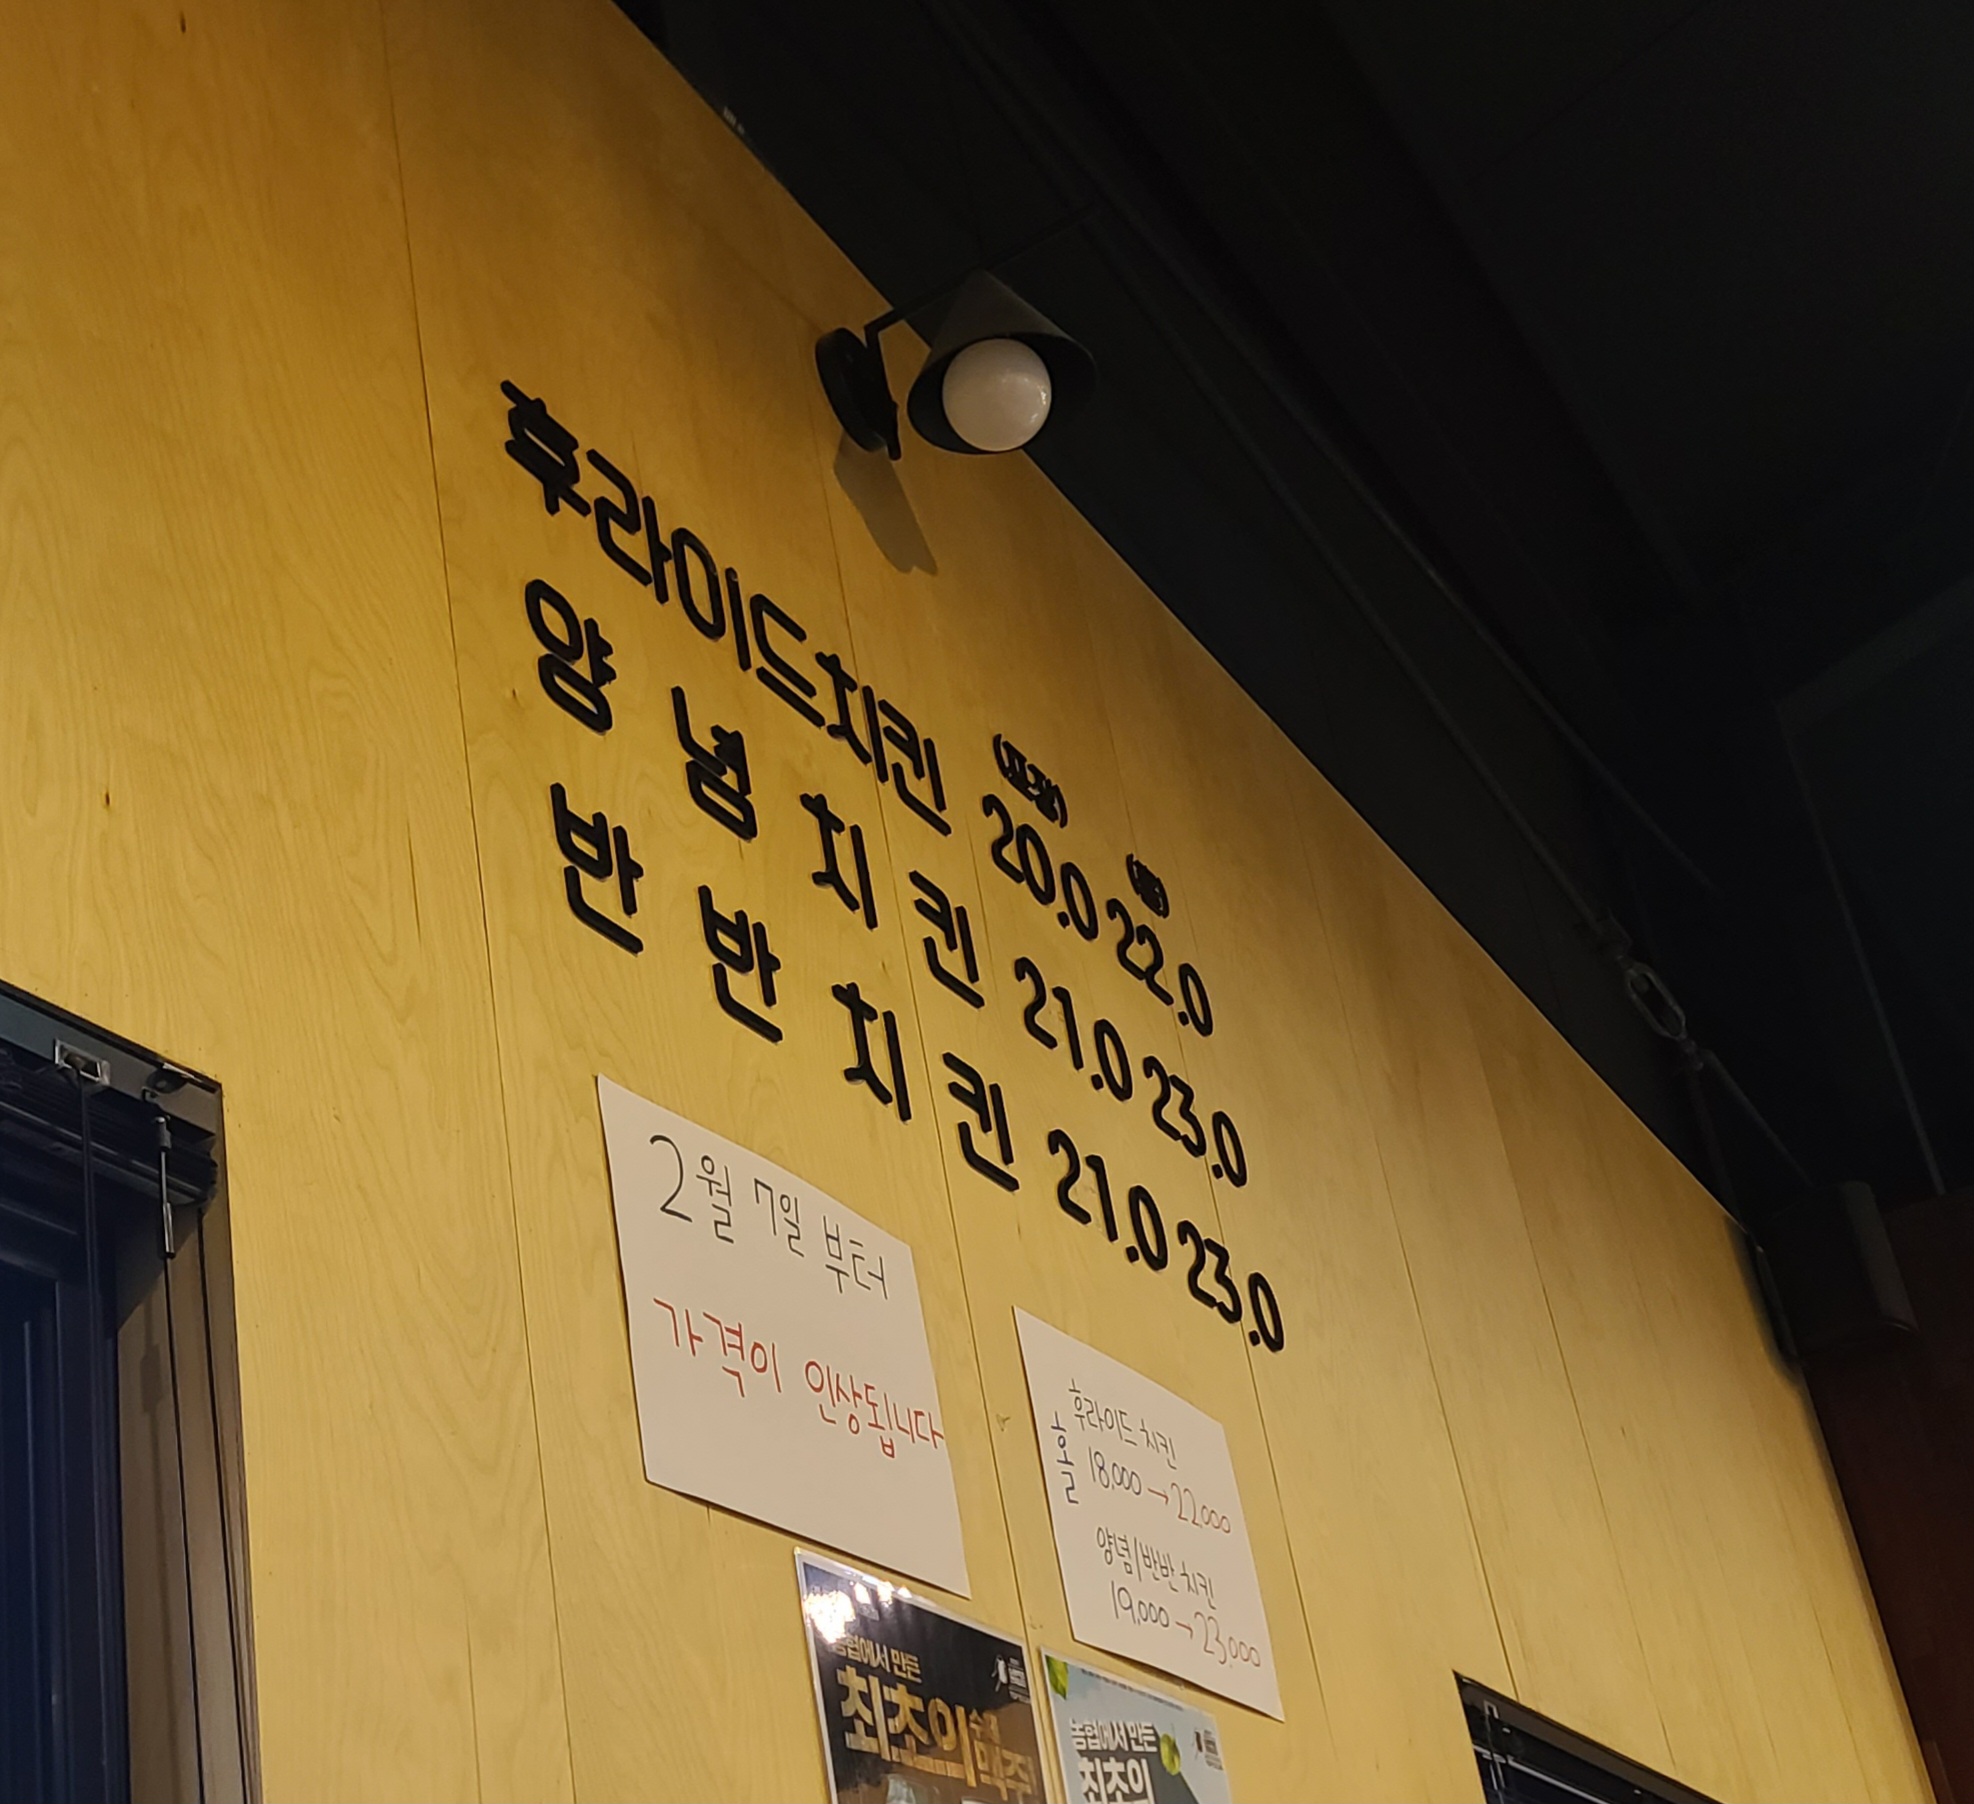 (포장)
(홀)
후라이드치킨 20.0 22.0
양념치킨 21.0 23.0
반반치킨 21.0 23.0
2월 7일 부터
가격이 인상됩니다
홀
후라이드 치킨
18,000→22,000
양념/반반 치킨
19,000→23,000
농협에서 만든
최초의
맥주
농협에서 만든
최초의